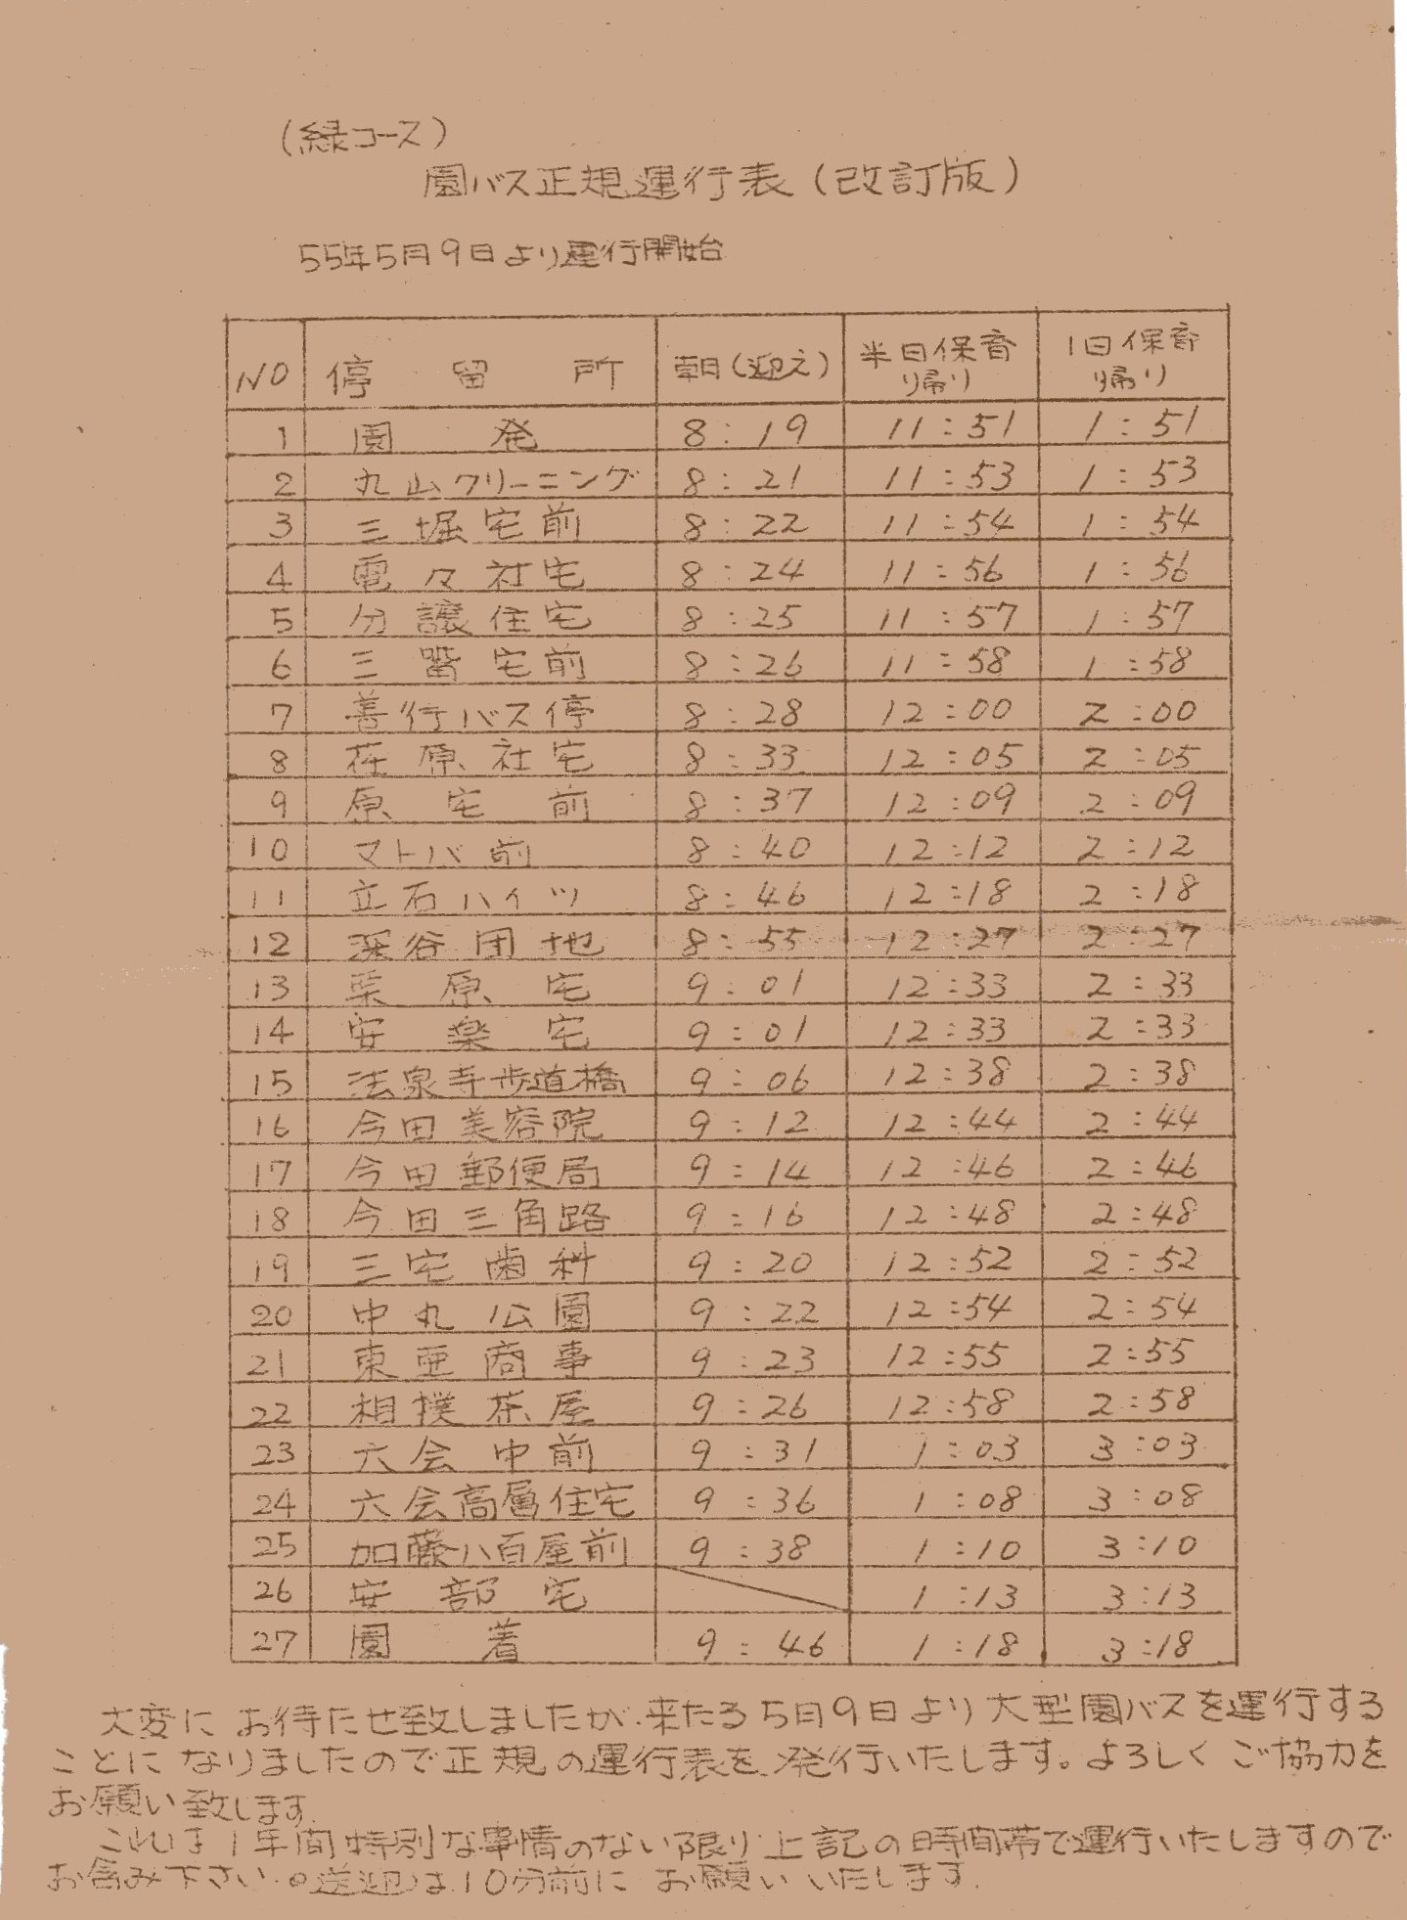 (緑コース)
園バス正規運行表(改訂版)
55年5月9日より運行開始
NO 停留所 朝(迎え) 半日保育帰り 1日保育帰り
1 園発 8:19 11:51 1:51
2 丸山クリーニング 8:21 11:53 1:53
3 三堀宅前 8:22 11:54 1:54
4 電々社宅 8:24 11:56 1:56
5 分譲住宅 8:25 11:57 1:57
6 三觜宅前 8:26 11:58 1:58
7 善行バス停 8:28 12:00 2:00
8 荏原社宅 8:33 12:05 2:05
9 原宅前 8:37 12:09 2:09
10 マトバ前 8:40 12:12 2:12
11 立石ハイツ 8:46 12:18 2:18
12 深谷団地 8:55 12:27 2:27
13 栗原宅 9:01 12:33 2:33
14 安楽宅 9:01 12:33 2:33
15 法泉寺歩道橋 9:06 12:38 2:38
16 今田美容院 9:12 12:44 2:44
17 今田郵便局 9:14 12:46 2:46
18 今田三角路 9:16 12:48 2:48
19 三宅歯科 9:20 12:52 2:52
20 中丸公園 9:22 12:54 2:54
21 東亜商事 9:23 12:55 2:55
22 相撲茶屋 9:26 12:58 2:58
23 六会中前 9:31 1:03 3:03
24 六会高層住宅 9:36 1:08 3:08
25 加藤八百屋前 9:38 1:10 3:10
26 安部宅 1:13 3:13
27 園着 9:46 1:18 3:18
大変にお待たせ致しましたが、来たる5月9日より大型園バスを運行する
ことになりましたので正規の運行表を発行いたします。よろしくご協力を
お願い致します。
これは1年間特別な事情のない限り上記の時間帯で運行いたしますので
お含み下さい。送迎は10分前にお願いいたします。